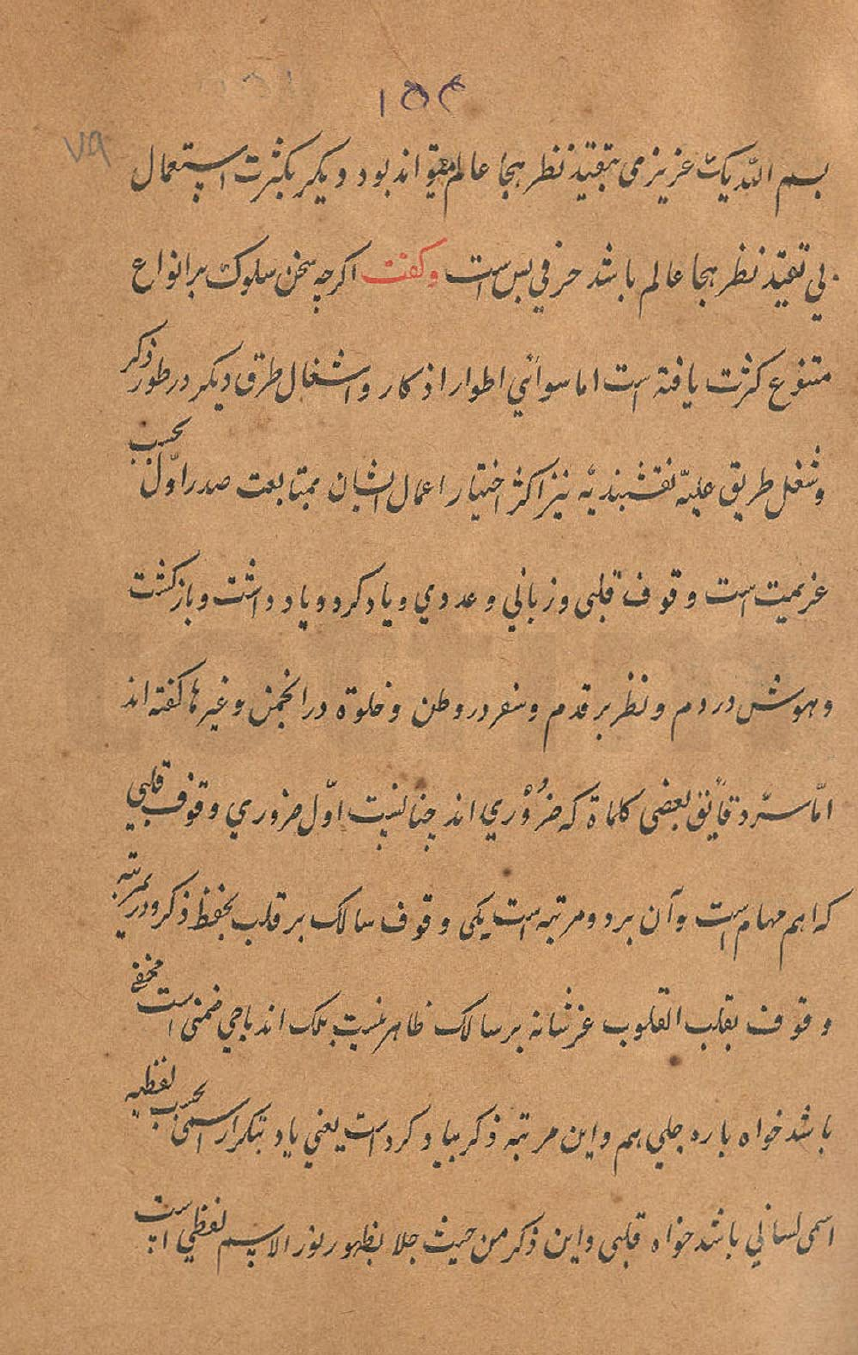 ۱۵۴
۷۹
بسم الله یک عزیز می بتقیّد نظر هجا عالم میتواند بود و یکر بکثرت استعمال
بی تقیّد نظر هجا عالم باشد حرفی بس است وکفت اکرچه سخن سلوک بر انواع
متنوع کثرت یافته است اما سوائی اطوار اذکار واشغال طرق دیکر در طور ذکر
وشغل طریق علیّه نقشبندیّه نیز اکثر اختیار اعمال ایشان بمتابعت صدر اوّل بحسب
عزیمت است وقوف قلبی وزبانی وعددی ویاد کرد ویاد داشت وبازکشت
وهوش در دم ونظر بر قدم وسفر در وطن وخلوة در انجمن وغیرها کفته اند
امّا سرّ دقایق بعضی کلماة که ضروری اند چنانست اوّل ضروری وقوف قلبی
که اهم مهام است وآن بر دو مرتبه است یکی وقوف سالک بر قلب بحفظ ذکر ودر مرتبه
وقوف بقلب القلوب عزشانه بر سالک ظاهر نسبت بلک اندباجی ضمنی است مخفی
باشد خواه باره جلی هم واین مرتبه ذکر بیاد کرد است یعنی یاد بتکرار اسمی بحسب لفظیه
اسمی لسانی باشد خواه قلبی واین ذکر من حیث جلا بظهور نور الاسم لفظی است